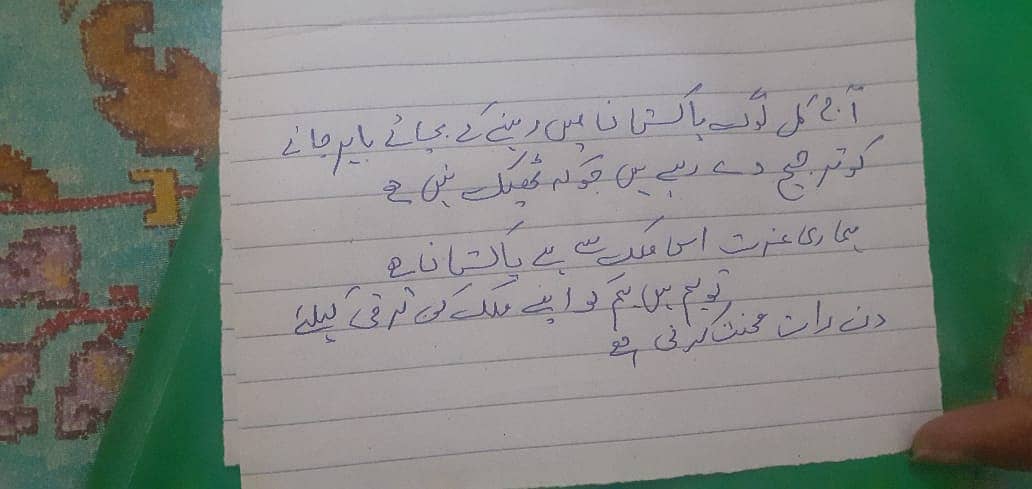 آج کل لوگ پاکستان میں رہنے کے بجائے باہر جانے
کو ترجیح دے رہے ہیں جو کہ ٹھیک نہیں ہے
ہماری عزت اس ملک سے ہے پاکستان ہے
تو ہم ہیں ہم کو اپنے ملک کی ترقی کیلئے
دن رات محنت کرنی ہے